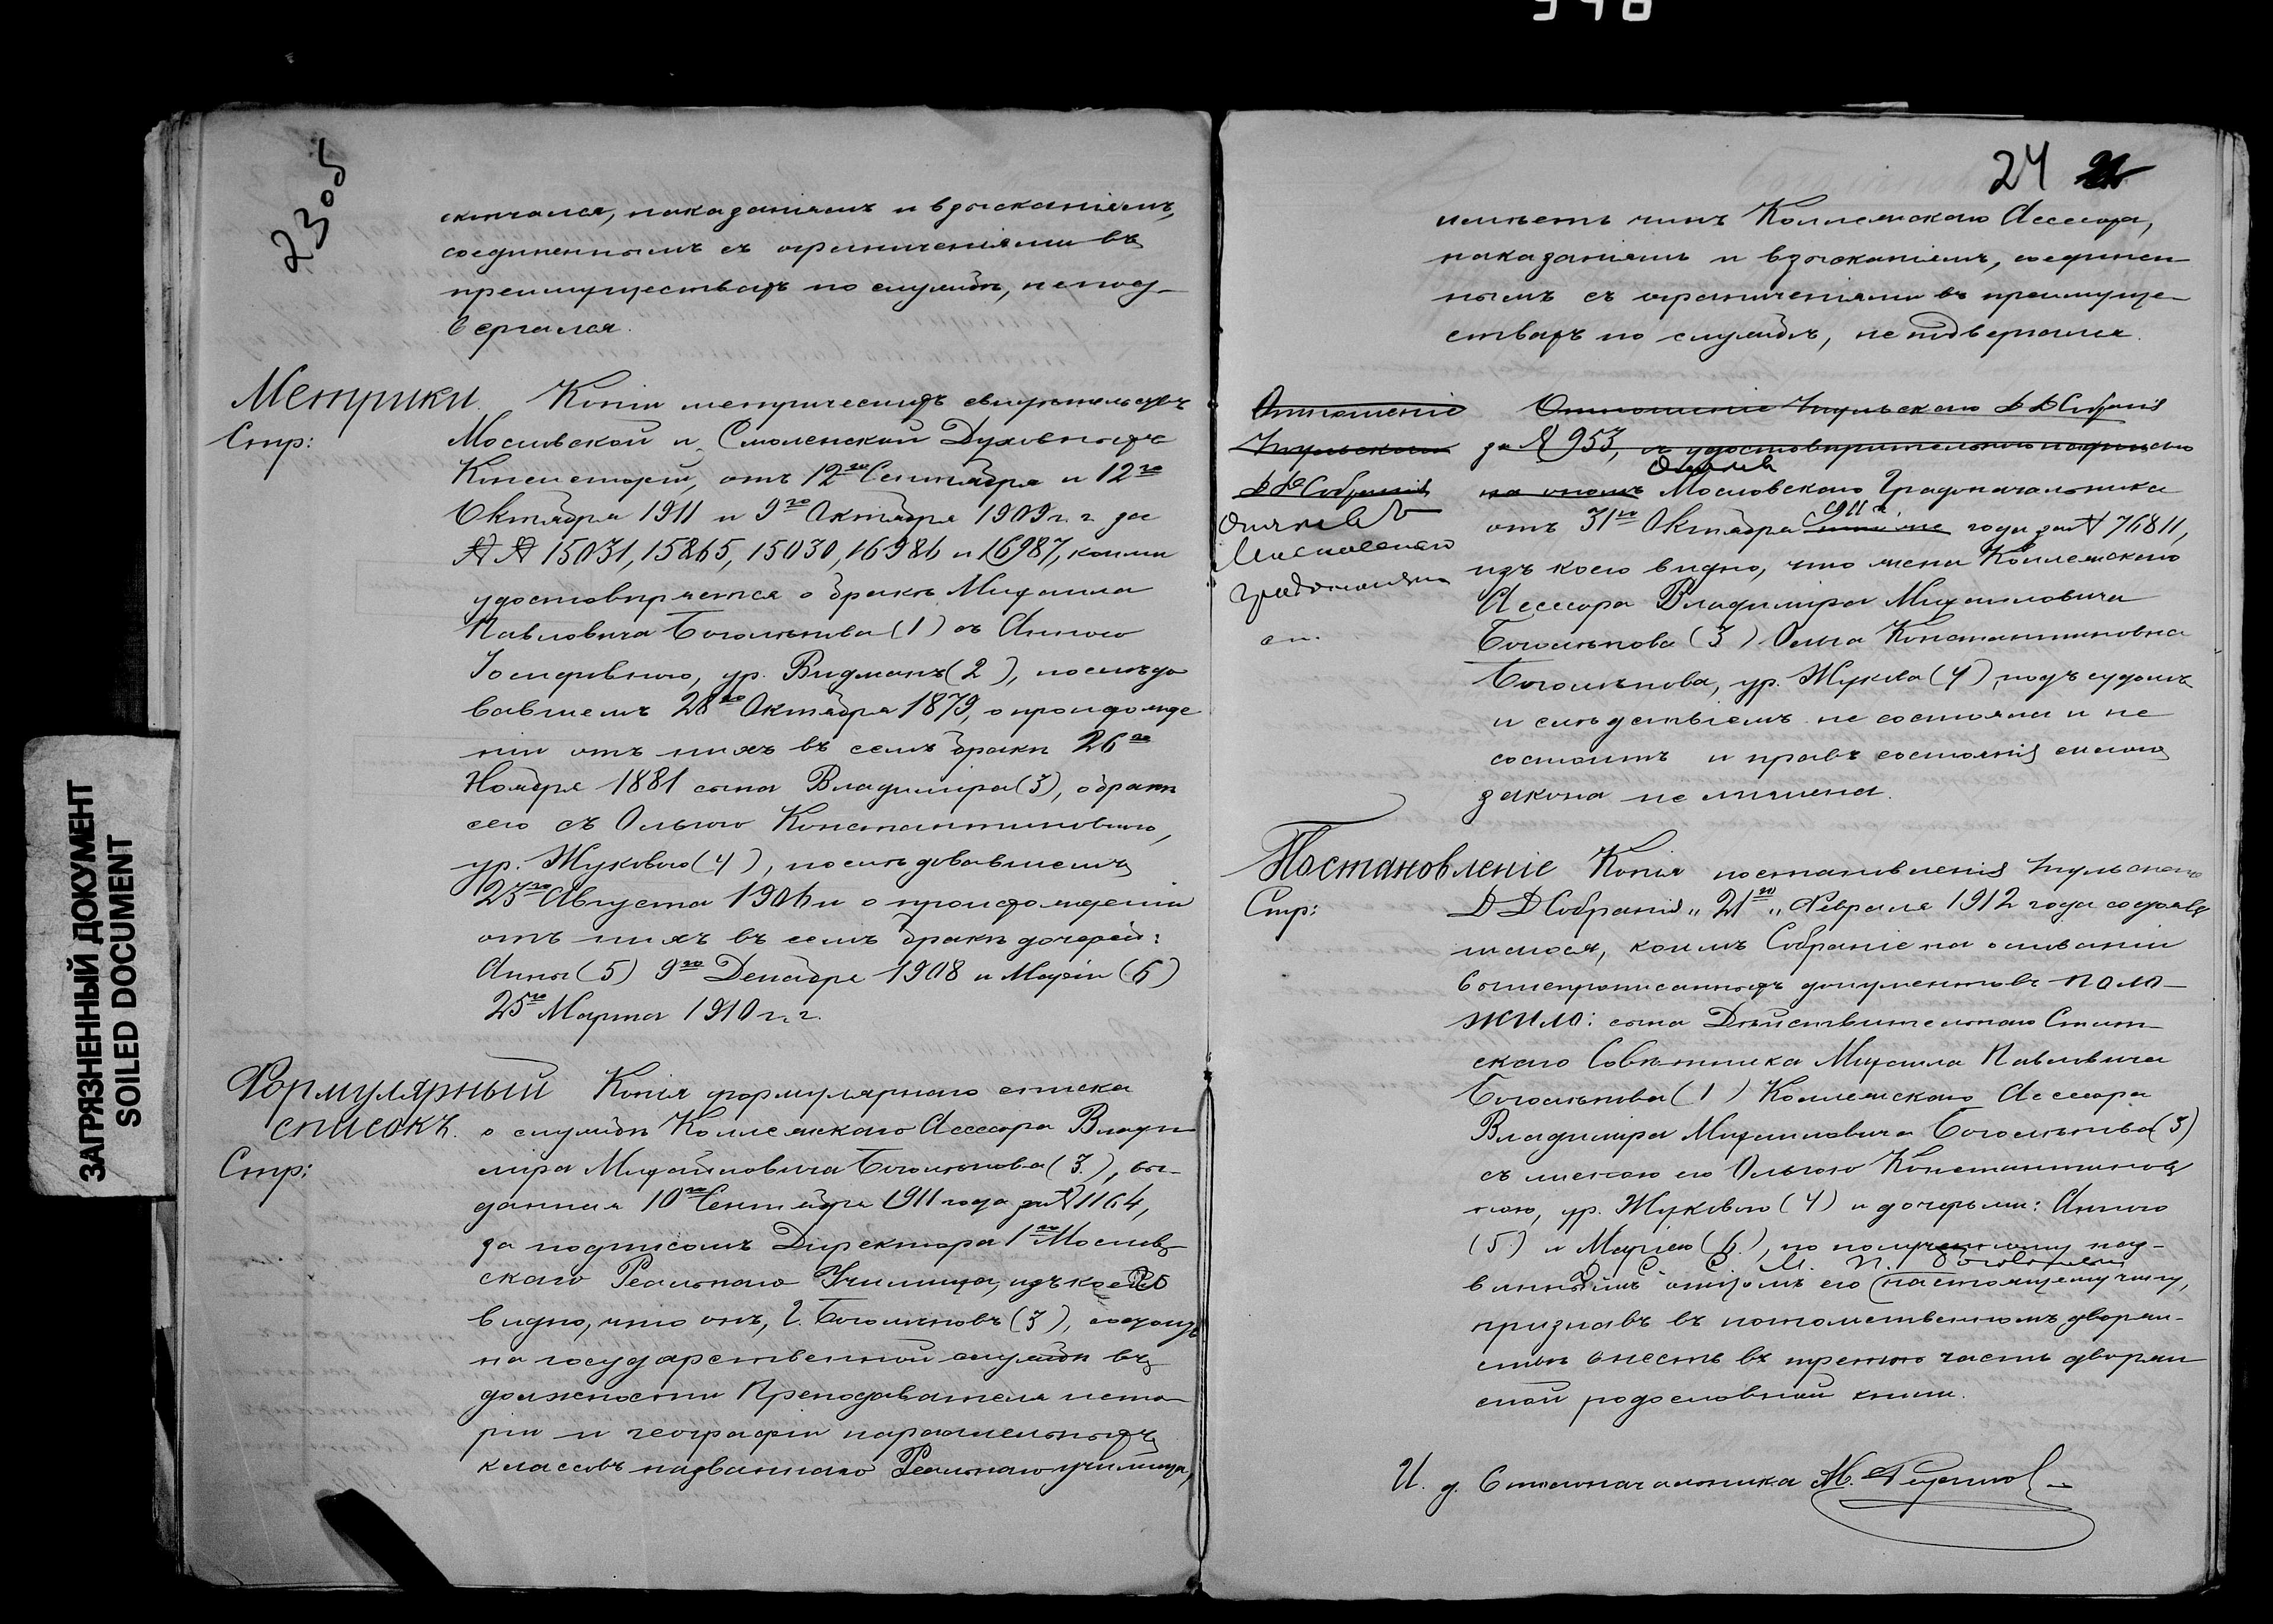 23 об
скончался, наказаніямъ и взысканіямъ,
соединеннымъ съ ограниченіями въ
преимуществахъ по службѣ, непод-
вергался.
Метрики. Копіи метрическихъ свидѣтельствъ
Стр: Московской и Смоленской Духовныхъ
Консисторій, отъ 12го Сентября и 12го
Октября 1911 и 9го Октября 1909 г.г. за
№ № 15031, 15865, 15030, 16986 и 16987, коими
удостовѣряется о бракѣ Михаила
Павловича Боголѣпова (1) съ Анною
Іосифовною, ур. Видманъ (2), послѣдо
вавшемъ 28го Октября 1879, о происхожде
ніи отъ нихъ въ семъ бракѣ 26го
Ноября 1881 сына Владиміра (3), о бракѣ
сего съ Ольгою Константиновною,
ур. Жуковою (4), послѣдовавшемъ
23го Августа 1906 и о происхожденіи
отъ нихъ въ семъ бракѣ дочерей:
Анны (5) 9го Декабря 1908 и Маріи (6)
25го Марта 1910 г.г.
Формулярный Копія формулярнаго списка
списокъ. о службѣ Коллежскаго Ассесора Влади
Стр: міра Михайловича Боголѣпова (3), вы-
данная 10го Сентября 1911 года за № 1164,
за подписомъ Директора 1го Москов
скаго Реальнаго Училища, изъ коего
видно, что онъ, Г. Боголѣповъ (3), состоя
на государственной службѣ въ
должности Преподавателя исто
ріи и географіи параллельныхъ
классовъ названнаго Реальнаго училища,
24
имѣетъ чинъ Коллежскаго Ассесора,
наказаніямъ и взысканіямъ, соединен-
нымъ съ ограниченіями въ преимуще-
ствахъ по службѣ, не подвергался.
Отношеніе Отношеніе Тульскаго Д Д Собранія
Тульскаго за № 953, съ удостовѣрительною надписью
Д Д Собранія на ономъ Московскаго Градоначальника
отъ 31го Октября 1911 г. года за № 76811,
Московскаго изъ коего видно, что жена Коллежскаго
Ассесора Владиміра Михайловича
Боголѣпова (3) Ольга Константиновна
Боголѣпова, ур. Жукова (4), подъ судомъ
и слѣдствіемъ не состояла и не
состоитъ и правъ состоянія силою
закона не лишена.
Постановленіе Копія постановленія Тульскаго
Стр: Д Д Собранія „21го„ Февраля 1912 года состояв
шагося, коимъ Собраніе на основаніи
вышепрописанныхъ документовъ поло-
жило: сына Дѣйствительнаго Стат-
скаго Совѣтника Михаила Павловича
Боголѣпова (1) Коллежскаго Ассесора
Владиміра Михайловича Боголѣпова (3)
съ женою его Ольгою Константинов
ною, ур. Жуковою (4) и дочерьми: Анною
(5) и Маріею (6), по полученному
отцомъ его настоящему чину,
признавъ въ потомственномъ дворян-
ствѣ внесть въ третью часть дворян
ской родословной книги.
И. д. Столоначальника М.
ЗАГРЯЗНЕННЫЙ ДОКУМЕНТ
SOILED DOCUMENT